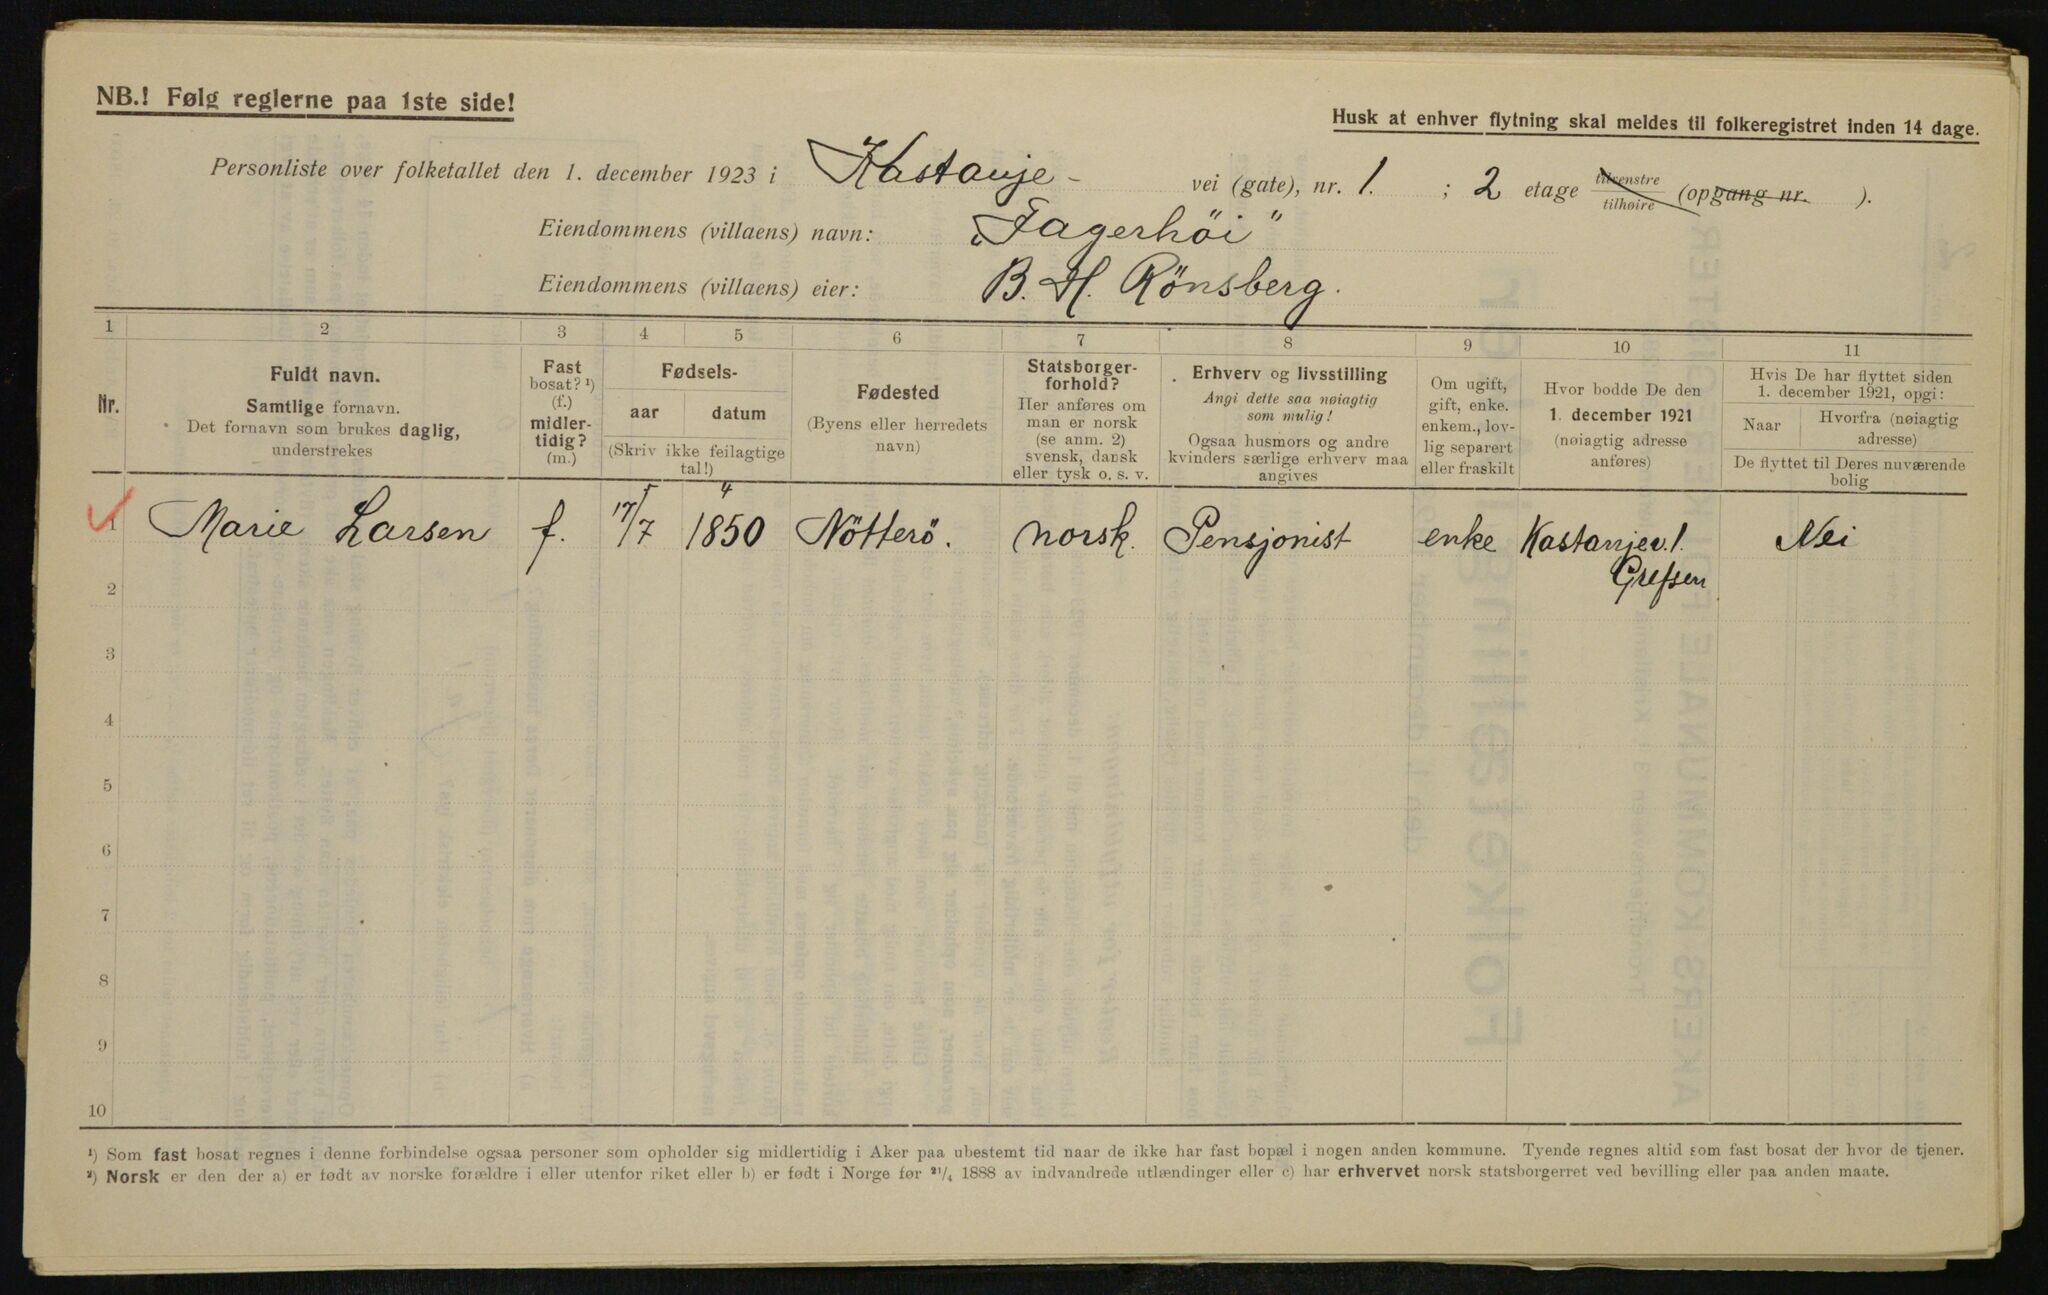 NB.! Følg reglerne paa 1ste side!
Husk at enhver flytning skal meldes til folkeregistret inden 14 dage.
Personliste over folketallet den 1. december 1923 i Kastanje- vei (gate), nr. 1. ; 2 etage tilvenstre/tilhøire (opgang nr. ).
Eiendommens (villaens) navn: „Fagerhöi"
Eiendommens (villaens) eier: B. H. Rönsberg.
1 2 3 4 5 6 7 8 9 10 11
Nr.
Fuldt navn.
Samtlige fornavn.
Det fornavn som brukes daglig,
understrekes
Fast
bosat? ¹)
(f.)
midler-
tidig?
(m.)
Fødsels-
aar datum
(Skriv ikke feilagtige
tal!)
Fødested
(Byens eller herredets
navn)
Statsborger-
forhold?
Her anføres om
man er norsk
(se anm. 2)
svensk, dansk
eller tysk o. s. v.
Erhverv og livsstilling
Angi dette saa nøiagtig
som mulig!
Ogsaa husmors og andre
kvinders særlige erhverv maa
angives
Om ugift,
gift, enke.
enkem., lov-
lig separert
eller fraskilt
Hvor bodde De den
1. december 1921
(nøiagtig adresse
anføres)
Hvis De har flyttet siden
1. december 1921, opgi:
Naar Hvorfra (nøiagtig
adresse)
De flyttet til Deres nuværende
bolig
1 Marie Larsen f. 17/7 1850 Nötterö. norsk. Pensjonist enke Kastanjev. 1. Nei
Grefsen
2
3
4
5
6
7
8
9
10
¹) Som fast bosat regnes i denne forbindelse ogsaa personer som opholder sig midlertidig i Aker paa ubestemt tid naar de ikke har fast bopæl i nogen anden kommune. Tyende regnes altid som fast bosat der hvor de tjener.
²) Norsk er den der a) er født av norske forældre i eller utenfor riket eller b) er født i Norge før ²¹/₄ 1888 av indvandrede utlændinger eller c) har erhvervet norsk statsborgerret ved bevilling eller paa anden maate.